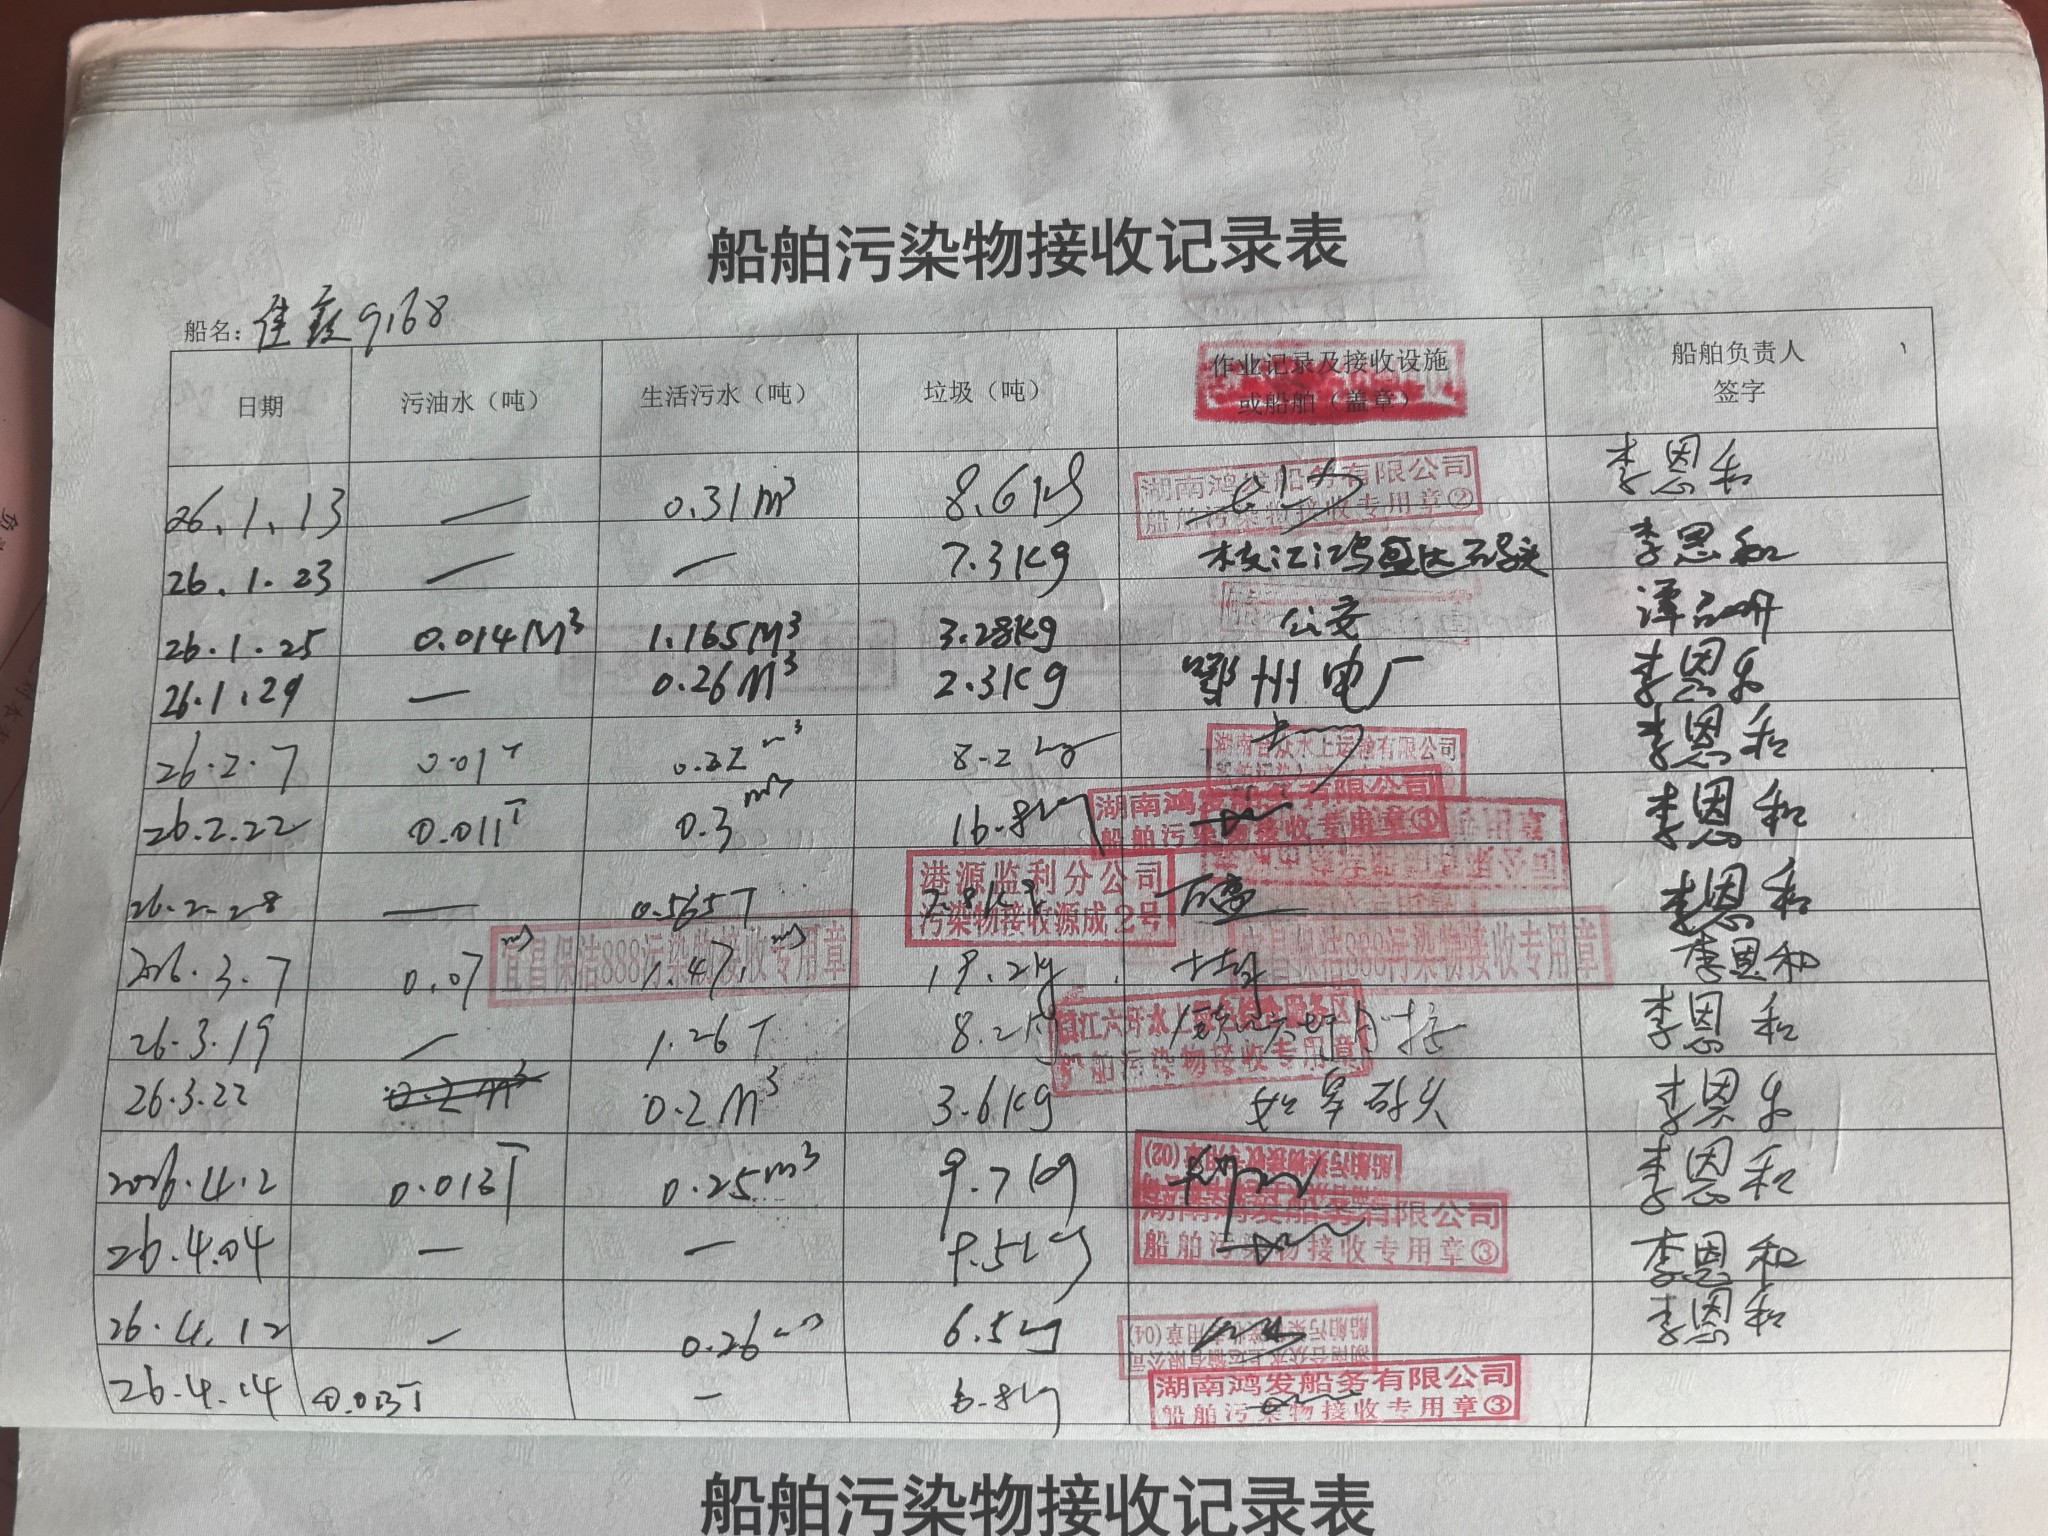 船舶污染物接收记录表
船名：佳鑫9168
日期 污油水（吨） 生活污水（吨） 垃圾（吨） 作业记录及接收设施或船舶（盖章） 船舶负责人签字
26.1.13 — 0.31m³ 8.6kg 湖南鸿发船务有限公司 船舶污染物接收专用章② 李恩和
26.1.23 — — 7.3kg 枝江鸿盛达码头 李恩和
26.1.25 0.014M³ 1.165M³ 3.28kg 公安
26.1.29 — 0.26M³ 2.3kg 鄂州电厂 李恩和
26.2.7 0.01T 0.22m³ 8.2kg 湖南百众水上运输有限公司 李恩和
26.2.22 0.011T 0.3m³ 16.8kg 湖南鸿发船务有限公司 船舶污染物接收专用章③ 李恩和
26.2.28 — 0.565T 7.8kg 港源监利分公司 污染物接收源成2号 李恩和
2026.3.7 0.07m³ 1.47m³ 19.2kg 宜昌保洁888污染物接收专用章 李恩和
26.3.19 — 1.26T 8.2kg 船舶污染物接收专用章 李恩和
26.3.22 0.2M³ 0.2M³ 3.6kg 如皋码头 李恩和
2026.4.2 0.013T 0.25m³ 9.7kg 船舶污染物接收专用章(02) 李恩和
26.4.04 — — 9.5kg 湖南鸿发船务有限公司 船舶污染物接收专用章③ 李恩和
26.4.12 — 0.26m³ 6.5kg 湖南百众水上运输有限公司 船舶污染物接收专用章(04) 李恩和
26.4.14 0.013T — 6.8kg 湖南鸿发船务有限公司 船舶污染物接收专用章③
船舶污染物接收记录表